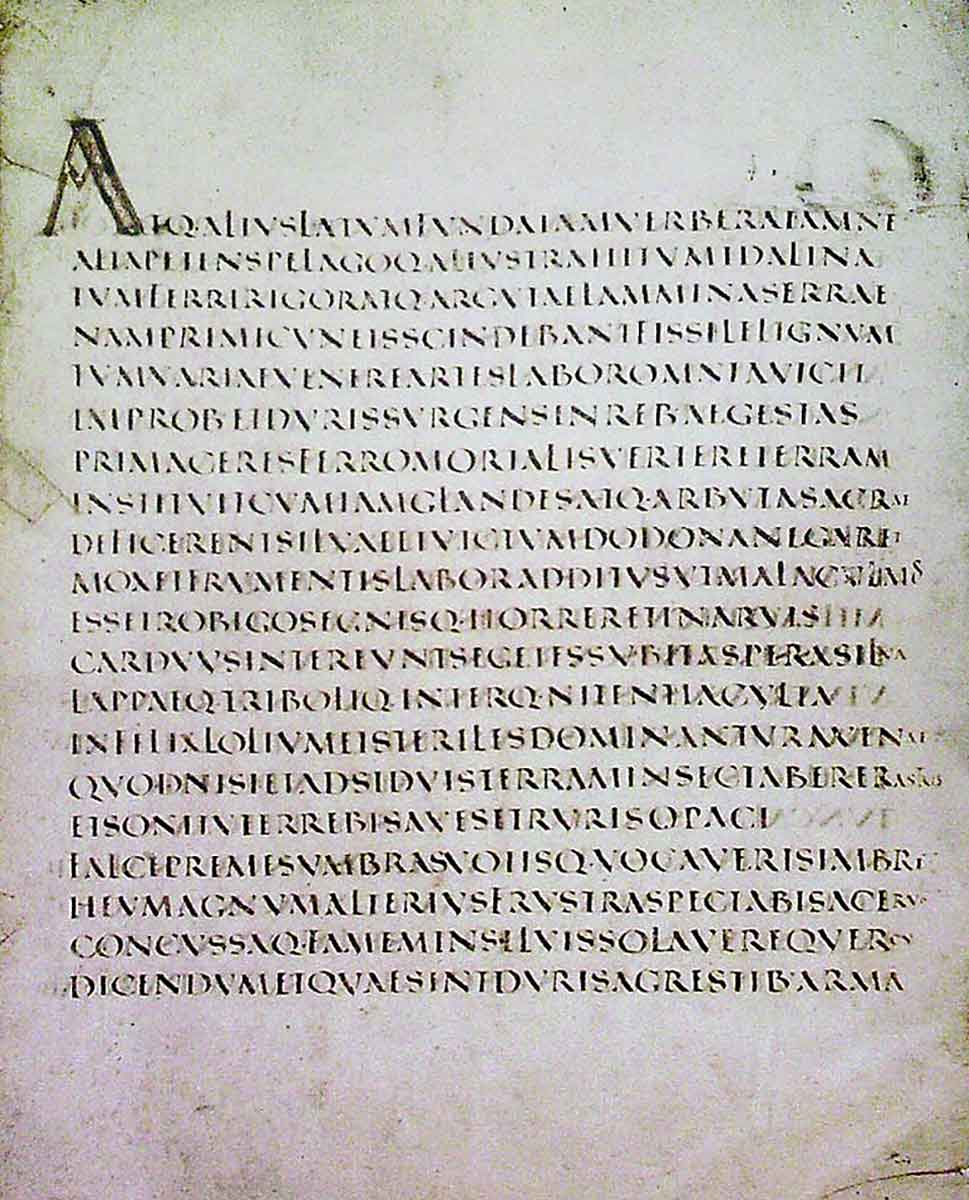 ATQ·ALIVSLATVMFVNDAIAMVERBERATAMNE
ALTAPETENSPELAGOQ·ALIVSTRAHITVMIDALINA
TVMFERRIRIGORATQ·ARGVTAELAMMINASERRAE
NAMPRIMICVNEISSCINDEBANTFISSILELIGNVM
TVMVARIAEVENEREARTESLABOROMNIAVICIT
IMPROBETDVRISSVRGENSENREBAEGESTAS
PRIMACERESFERROMORTALISVERTERETERRAM
INSTITVITCVMIAMGLANDESATQ·ARBVTASACRAE
DEFICERENTSILVAEETVICTVMDODONANEGARET
MOXETFRVMENTISLABORADDITVSVTMALACVLMOS
ESSETROBIGOSEGNISQ·HORRERETINARVIS
CARDVVSINTEREVNTSEGETESSVBITASPERASILVA
LAPPAEQ·TRIBOLIQ·INTERQ·NITENTIACVLTA
INFELIXLOLIVMETSTERILESDOMINANTVRAVENAE
QVODNISIETADSIDVISTERRAMINSECTABERERASTRIS
ETSONITVTERREBISAVESETRVRISOPACI
FALCEPREMESVMBRASVOTISQ·VOCAVERISIMBRE
HEVMAGNVMALTERIVSFRVSTRASPECTABISACERVO
CONCVSSAQ·FAMEMINSILVISSOLAVEREQVERCV
DICENDVMETQVAESINTDVRISAGRESTIB·ARMA